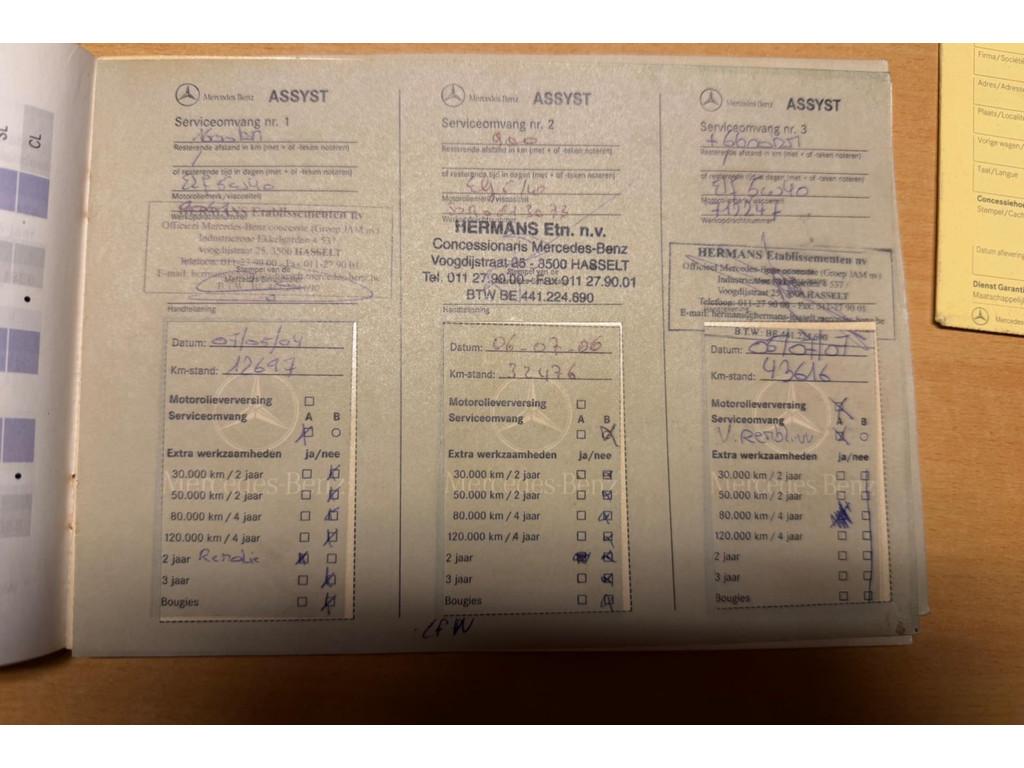 SL
CL
Mercedes-Benz ASSYST
Serviceomvang nr. 1
Resterende afstand in km (met + of -teken noteren)
of resterende tijd in dagen (met + of -teken noteren)
5w40
Motoroliemerk/viscositeit
HERMANS Etablissementen nv
Officieel Mercedes-Benz concorde (Groep JAM nv)
Industriezone Ekkelgarden 4 537
Voogdijstraat 25, 3500 HASSELT
Telefoon: 011-27 90 00 - Fax: 011-27 90 01
Stempel van de
Handtekening
Datum: 07/05/04
Km-stand: 12697
Motorolieverversing
Serviceomvang A B
Extra werkzaamheden ja/nee
30.000 km / 2 jaar
50.000 km / 2 jaar
80.000 km / 4 jaar
120.000 km / 4 jaar
2 jaar Remolie
3 jaar
Bougies
Mercedes-Benz
Mercedes-Benz ASSYST
Serviceomvang nr. 2
900
Resterende afstand in km (met + of -teken noteren)
of resterende tijd in dagen (met + of -teken noteren)
Motoroliemerk/viscositeit
HERMANS Etn. n.v.
Concessionaris Mercedes-Benz
Voogdijstraat 25 - 3500 HASSELT
Tel. 011 27.90.00 - Fax 011 27.90.01
BTW BE 441.224.690
Handtekening
Datum: 06-07-06
Km-stand: 32476
Motorolieverversing
Serviceomvang A B
Extra werkzaamheden ja/nee
30.000 km / 2 jaar
50.000 km / 2 jaar
80.000 km / 4 jaar
120.000 km / 4 jaar
2 jaar
3 jaar
Bougies
Mercedes-Benz
Mercedes-Benz ASSYST
Serviceomvang nr. 3
Resterende afstand in km (met + of -teken noteren)
of resterende tijd in dagen (met + of -teken noteren)
5w40
Motoroliemerk/viscositeit
715247
Werkopdrachtnummer
HERMANS Etablissementen nv
Officieel Mercedes-Benz concorde (Groep JAM nv)
Industriezone Ekkelgarden 4 537
Voogdijstraat 25, 3500 HASSELT
Telefoon: 011-27 90 00 - Fax: 011-27 90 01
B.T.W. BE 441.224.690
Datum: 06/07/07
Km-stand: 43616
Motorolieverversing
Serviceomvang A B
Extra werkzaamheden ja/nee
30.000 km / 2 jaar
50.000 km / 2 jaar
80.000 km / 4 jaar
120.000 km / 4 jaar
2 jaar
3 jaar
Bougies
Mercedes-Benz
Firma/Société
Adres/Adresse
Plaats/Localité
Vorige wagen/
Taal/Langue
Stempel/Cach
Datum aflevering
Dienst Garanti
Maatschappelij
Mercedes